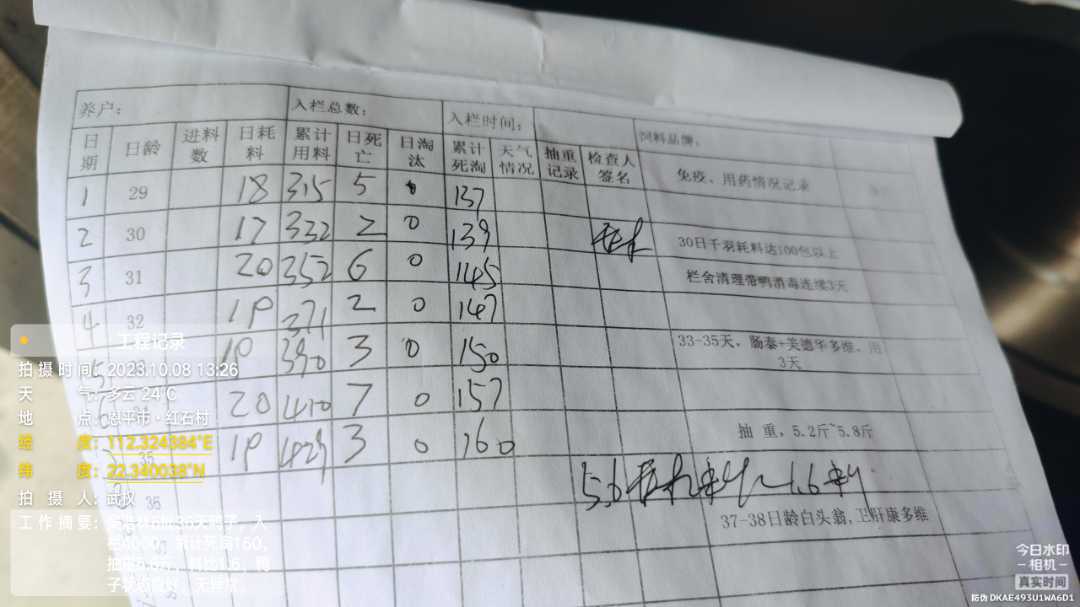 养户: 入栏总数: 入栏时间: 饲料品牌:
日期 日龄 进料数 日耗料 累计用料 日死亡 日淘汰 累计死淘 天气情况 抽重记录 检查人签名 免疫、用药情况记录
1 29 18 315 5 0 137
2 30 17 332 2 0 139 30日千羽耗料达100包以上
3 31 20 352 6 0 145 栏舍清理带鸭消毒连续3天
4 32 19 371 2 0 147
5 19 390 3 0 150 33-35天,肠泰+美德华多维,用3天
20 410 7 0 157
35 19 429 3 0 160 抽重,5.2斤~5.8斤
36 5.6斤 1.6
37-38日龄白头翁,卫肝康多维
工程记录
拍摄时间: 2023.10.08 13:26
天气: 多云 24℃
地点: 恩平市·红石村
经度: 112.324384°E
纬度: 22.340038°N
拍摄人: 武仪
工作摘要: 入
4000,累计死淘160,
料比1.6,
今日水印
相机
真实时间
防伪 DKAE493U1WA6D1